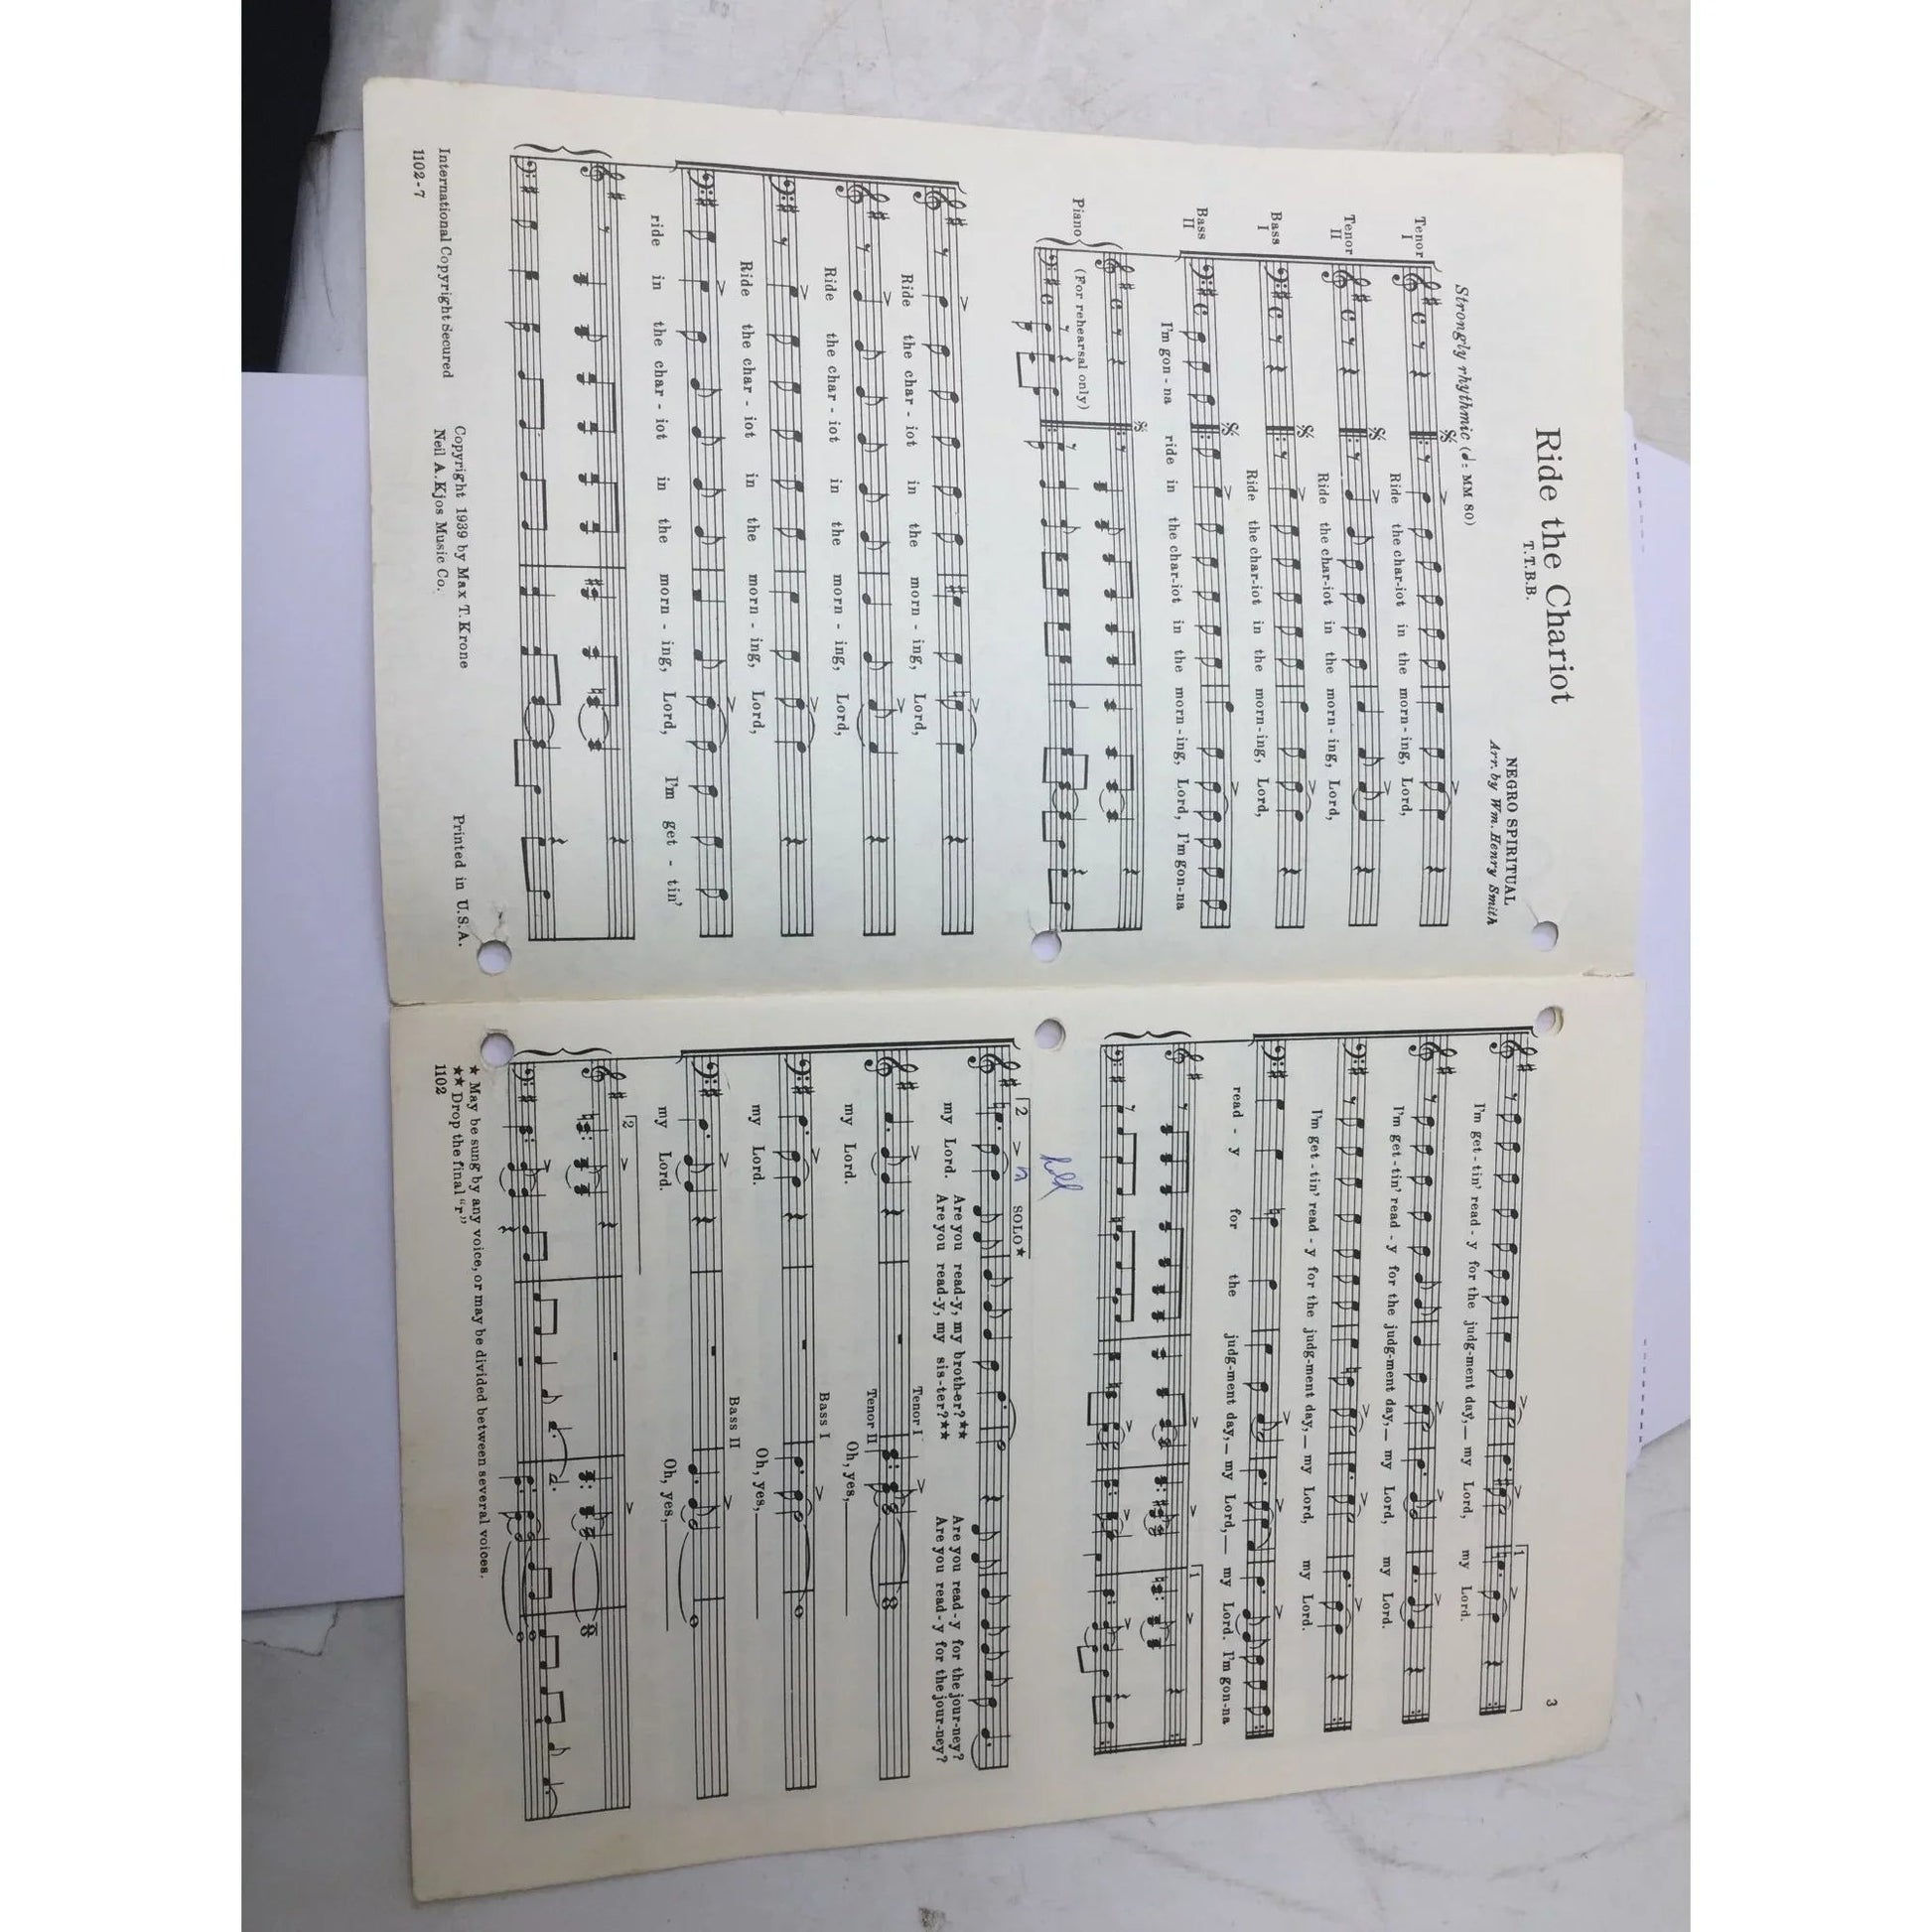 Ride the Chariot
T.T.B.B.
NEGRO SPIRITUAL
Arr. by Wm. Henry Smith
Strongly rhythmic (𝅗𝅥 = MM 80)
Tenor I
Ride the char-iot in the morn-ing, Lord,
Tenor II
Ride the char-iot in the morn-ing, Lord,
Bass I
Ride the char-iot in the morn-ing, Lord,
Bass II
I'm gon-na ride in the char-iot in the morn-ing, Lord, I'm gon-na
Piano
(For rehearsal only)
Ride the char - iot in the morn - ing, Lord,
Ride the char - iot in the morn - ing, Lord,
Ride the char - iot in the morn - ing, Lord,
ride in the char - iot in the morn - ing, Lord, I'm get - tin'
Copyright 1939 by Max T. Krone
International Copyright Secured
Neil A. Kjos Music Co.
Printed in U.S.A.
1102-7
3
1
I'm get-tin' read-y for the judg-ment day,— my Lord, my Lord.
I'm get-tin' read-y for the judg-ment day,— my Lord, my Lord.
I'm get-tin' read-y for the judg-ment day,— my Lord, my Lord.
read - y for the judg-ment day,— my Lord,— my Lord. I'm gon-na
1
2 SOLO★
my Lord. Are you read-y, my broth-er?★★ Are you read-y for the jour-ney?
Are you read-y, my sis-ter?★★ Are you read-y for the jour-ney?
Tenor I
Tenor II
my Lord. Oh, yes,
Bass I
my Lord. Oh, yes,
Bass II
my Lord. Oh, yes,
2
★ May be sung by any voice, or may be divided between several voices.
★★ Drop the final "r"
1102